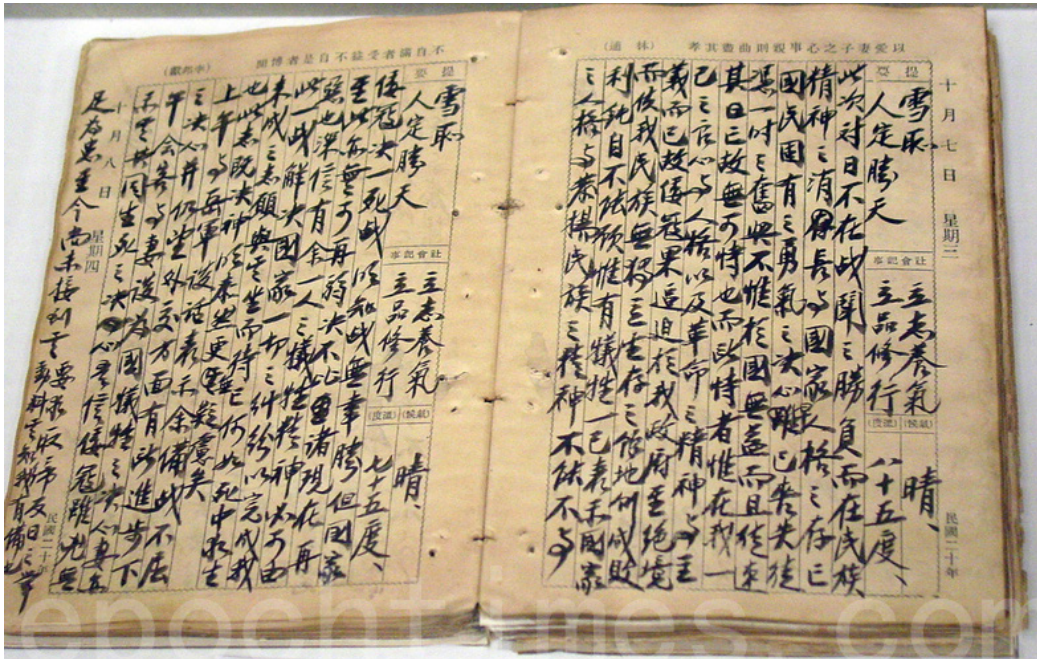 以愛妻子之心事親則曲盡其孝 （林逋）
十月七日 星期三 民國二十年
提要
雪恥
人定勝天
社會記事
立志養氣
立品修行
（氣候）（溫度）
晴、
八十五度、
此次對日不在戰鬪之勝負而在民族
精神之消長與國家人格之存亡
國民固有之勇氣之決心早已喪失徒
憑一時之奮興不惟於國無益而且徒速
其亡故無可恃也而所恃者惟在我一
己之良心與人格以及革命之精神與主
義而已故倭寇果逼迫於我政府至絕境
而使我民族無獨立生存之餘地則成敗
利鈍自不法顧惟有犧牲一己表示國家
之人格與發揚民族之精神不能不與
不自滿者受益不自是者博聞 （李邦獻）
十月八日 星期四 民國二十年
提要
雪恥
人定勝天
社會記事
立志養氣
立品修行
（氣候）（溫度）
晴、
七十五度、
倭寇決一死戰明知戰無幸勝但國家
至此亦無可再弱決不止
也深信有余一人之犧牲精神必可由
此一戰解決國家一切之糾紛以完成我
未成之志願與其坐而待亡何如死中求生
也此志既決神明泰然更無疑慮矣
上午與海軍談話表示余備戰不屈
之決心并仍望外交方面有所進步下
午會客與妻談為國犧牲之決心妻亦
示其同生死之決心吾信倭寇雖兇無
足為患至今尚未接到其要求取市反日之事
有備也
epochtimes.com